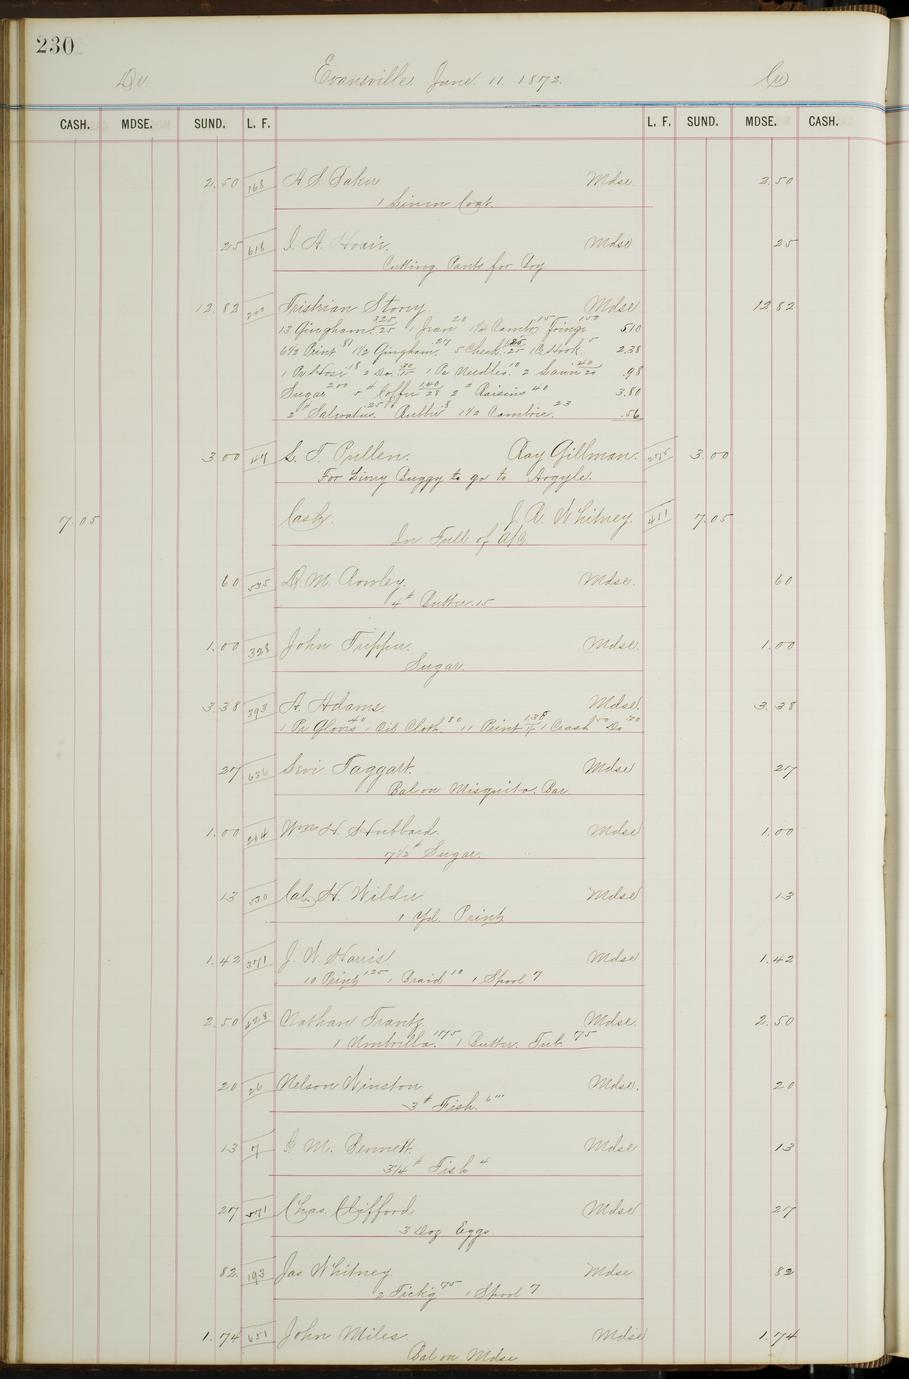 230
Dr. Evansville June 11 1872. Cr
CASH. MDSE. SUND. L. F. L. F. SUND. MDSE. CASH.
2.50 168 A S. Baker Mdse 2.50
1 Linen Coat.
25 618 A. Mdse 25
Cutting Pants for Boy
12.82 Tristrian Story Mdse 12.82
13 Gingham 325/25 1 Jean 20 1 1/4 Cambc 15 Fringe 150 5.10
6 1/2 Print 81 1 1/2 Gingham 27 5 Check 125/25 1 C Hook 5 2.38
1 Pr Hose 18 2 Do. 30/15 1 Pr Needles 10 2 Lawn 40/20 .98
Sugar 200 5 # Coffee 140/28 2 # Raisins 40 3.80
2 # Salratus 25 Butter 8 1 1/2 Cambric 23 .56
3.00 47 S. T. Pullen. Ray Gillman. 3.00
For Livry Buggy to go to Argyle.
7.05 Cash. J. A. Whitney. 411 7.05
In Full of A/C
60 535 D M. Rowley. Mdse. 60
4 # Butter 15
1.00 328 John Tupper. Mdse. 1.00
Sugar.
3.38 393 A. Adams. Mdse. 3.38
1 Pr Gloves 40 1 Oil Cloth 80 11 Print 1 Crash 50 Do
27 636 Levi Taggart. Mdse 27
Bal on Misquito. Bar.
1.00 204 Wm H. Hubbard. Mdse 1.00
7 1/2 # Sugar.
13 530 Cal. H. Wilder. Mdse 13
1 Yd. Print
1.42 371 J. W. Harris Mdse 1.42
10 Print 125 1 Braid 10 1 Spool 7
2.50 628 Nathan Frantz Mdse 2.50
1 Umbrilla. 175 1 Butter Tub. 75
20 26 Nelson Winston Mdse. 20
3 # Fish. 6
13 7 M. Bennett. Mdse 13
3 1/4 # Fish 4
27 571 Chas. Clifford Mdse 27
3 Doz Eggs
82 193 Jas Whitney Mdse 82
2 Tick'g 75 1 Spool 7
1.74 651 John Miles Mdse 1.74
Bal on Mdse